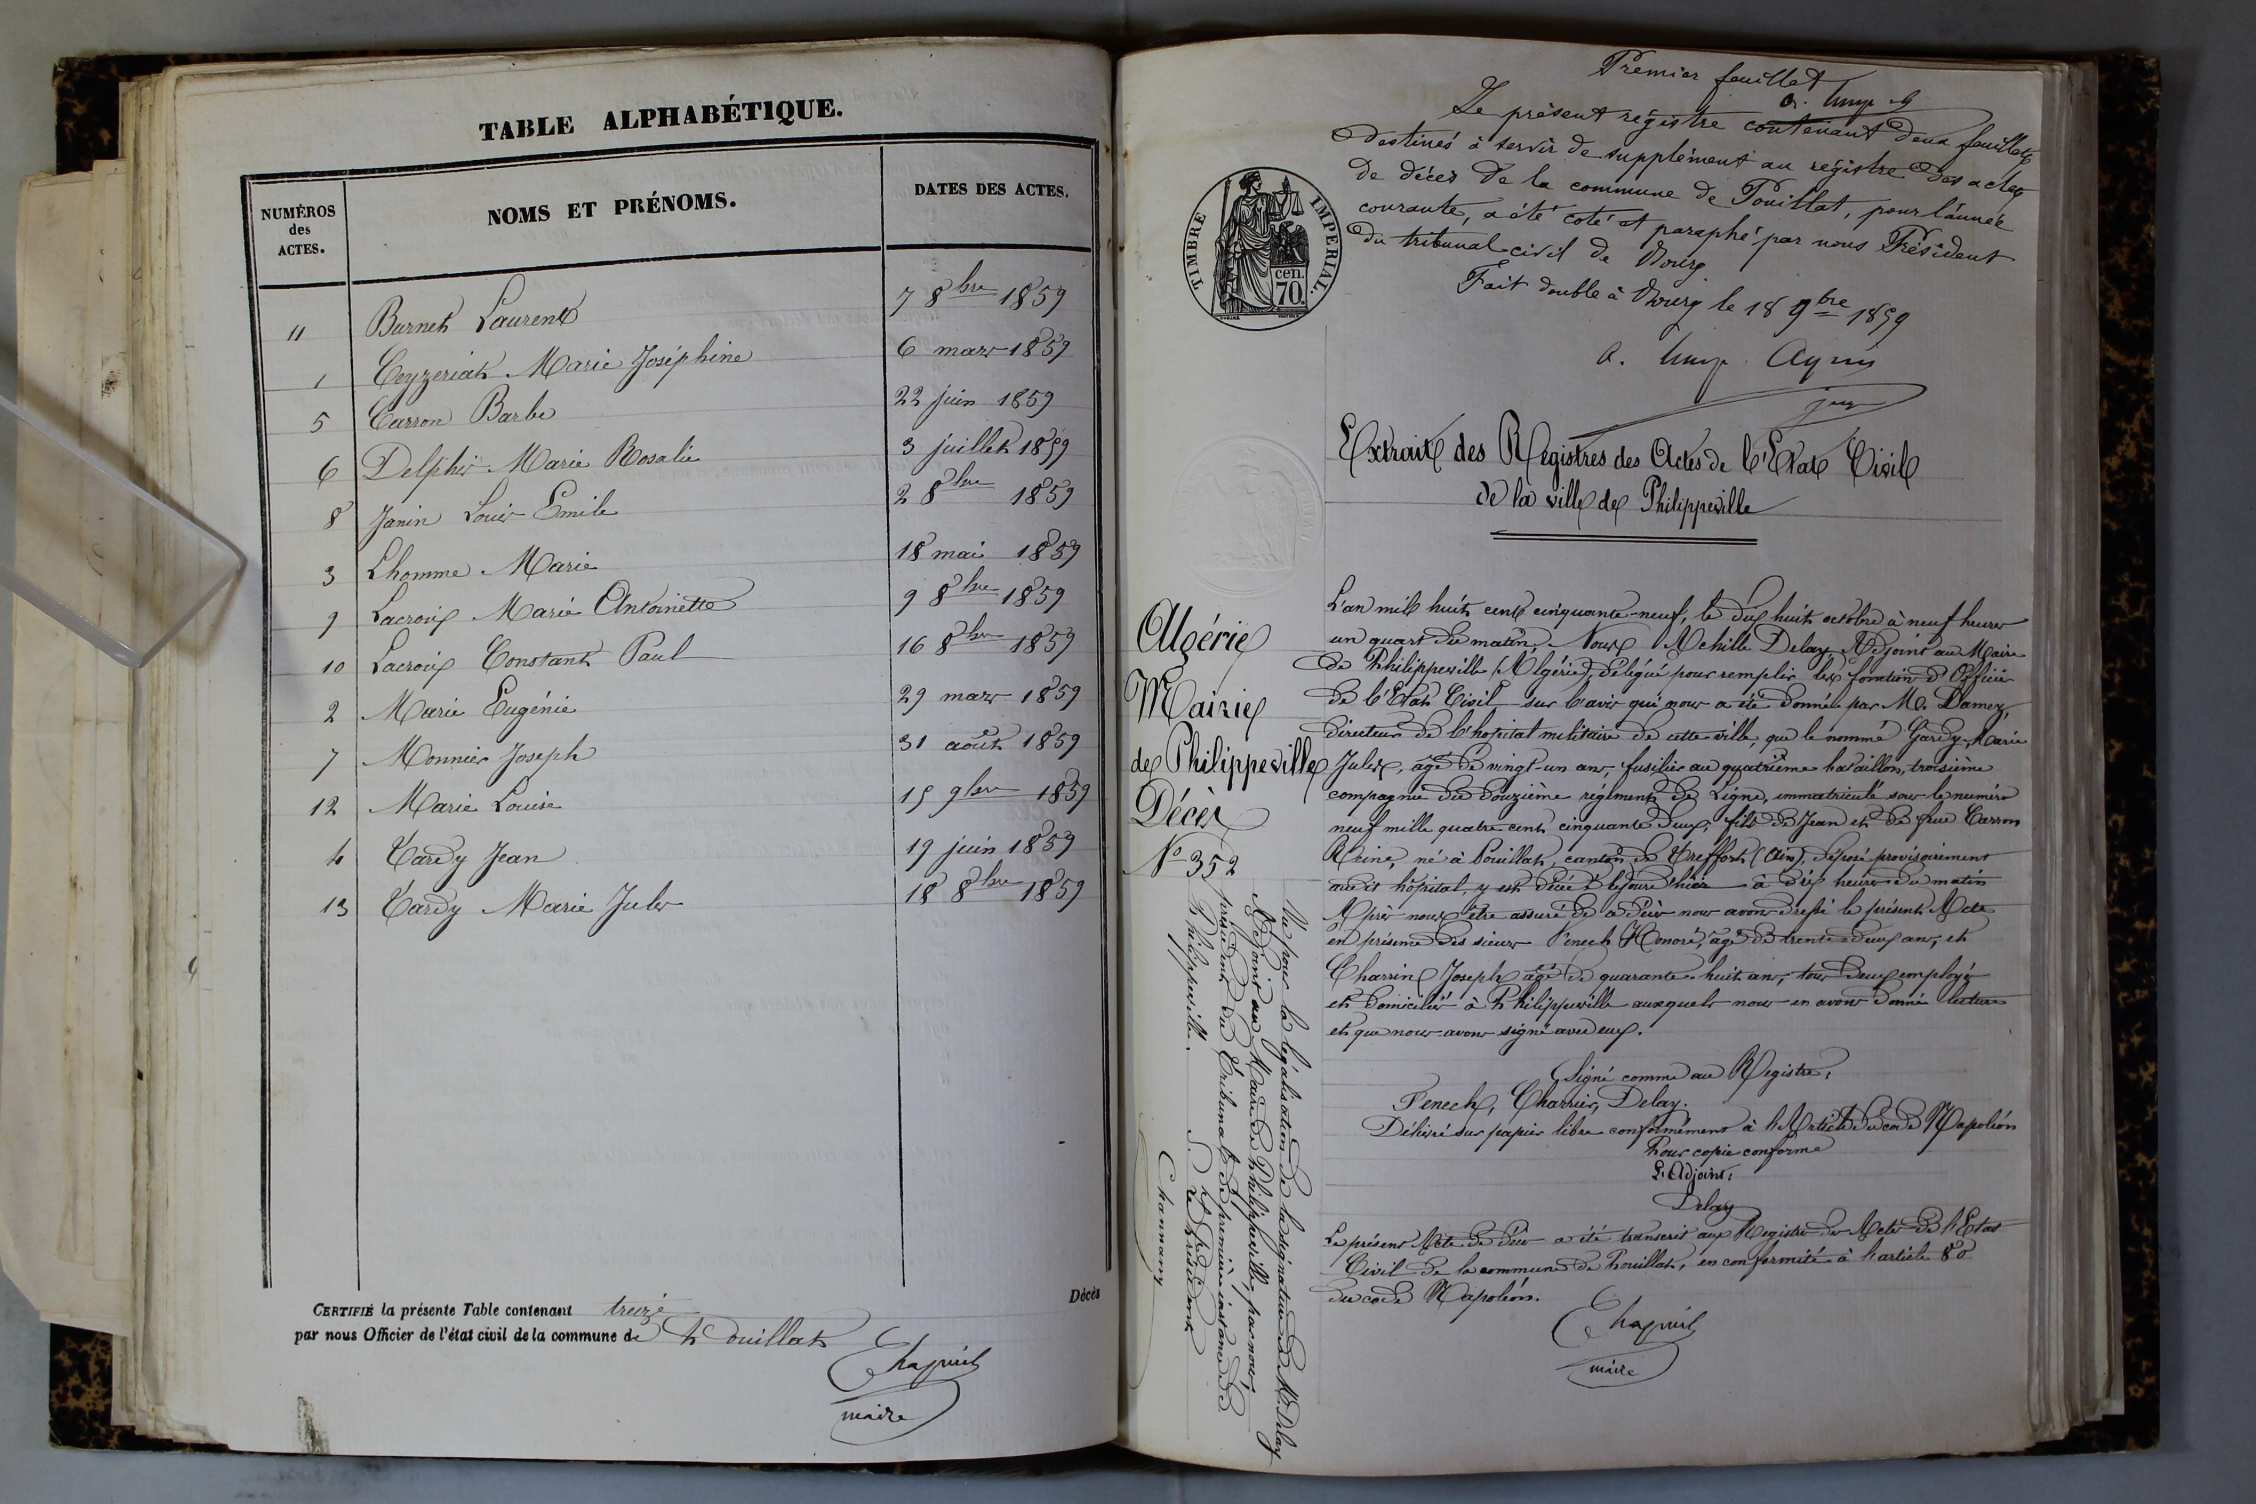 TABLE ALPHABÉTIQUE.
NUMÉROS des ACTES.
NOMS ET PRÉNOMS.
DATES DES ACTES.
11 Burnet Laurent 7 8bre 1859
1 Ceyzeriat Marie Joséphine 6 mars 1859
5 Carron Barbe 22 juin 1859
6 Delphis Marie Rosalie 3 juillet 1859
8 Janin Louis Emile 2 8bre 1859
3 Lhomme Marie 18 mai 1859
9 Lacroix Marie Antoinette 9 8bre 1859
10 Lacroix Constant Paul 16 8bre 1859
2 Marie Eugénie 29 mars 1859
7 Monnier Joseph 31 août 1859
12 Marie Louise 15 9bre 1859
4 Tardy Jean 19 juin 1859
13 Tardy Marie Jules 18 8bre 1859
Décès
CERTIFIÉ la présente Table contenant treize
par nous Officier de l'état civil de la commune de Pouillat
Chapuis
maire
Premier feuillet
Le présent registre contenant deux feuillets
destinés à servir de supplément au registre des actes
de décès de la commune de Pouillat, pour l'année
courante, a été coté et paraphé par nous Président
du tribunal civil de Bourg
Fait double à Bourg le 18 9bre 1859
TIMBRE IMPERIAL.
cen.
70.
Extrait des Registres des Actes de l'Etat Civil
de la ville de Philippeville
Algérie
Mairie
de Philippeville
Décès
No 352
L'an mil huit cent cinquante-neuf, le dix huit octobre à neuf heures
un quart du matin, Nous Achille Delay, Adjoint au Maire
de Philippeville (Algérie), délégué pour remplir les fonction d'Officier
de l'Etat Civil sur l'avis qui nous a été donné par Mr Damez,
Directeur de l'hopital militaire de cette ville, que le nommé Gardy Marie
Jules, âgé de vingt-un ans, fusilier au quatrième bataillon, troisième
compagnie du douzième régiment de Ligne, immatriculé sous le numéro
neuf mille quatre cent cinquante deux, fils de Jean et de feue Carron
Reine, né à Pouillat, canton de Treffort (Ain), déposé provisoirement
audit hôpital, y est décédé le jour d'hier à dix heures du matin
Après nous être assuré de ce décès nous avons dressé le présent Acte
en présence des sieurs Fenech Honoré, âgé de trente-deux ans, et
Charrin Joseph âgé de quarante-huit ans, tous deux employés
et domiciliés à Philippeville auxquels nous en avons donné lecture
et que nous avons signé avec eux.
Signé comme au Registre:
Fenech, Charrier, Delay.
Délivré sur papier libre conformément à l'Article du code Napoléon
Pour copie conforme
L'Adjoint:
Delay
Le présent Acte de décès a été transcrit aux Registre des Actes de l'Etat
Civil de la commune de Pouillat, en conformité à l'article 80
du code Napoléon.
Chapuis
maire
Vu pour la légalisation de la signature de Mr Delay
Adjoint au Maire de Philippeville, par nous
président du Tribunal de première instance de
Philippeville.